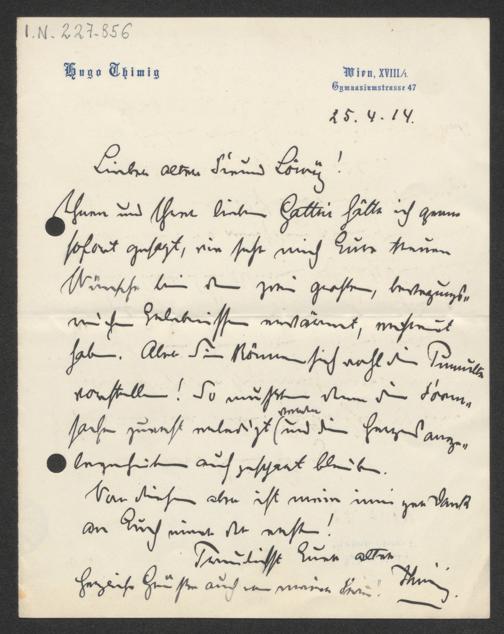 I.N. 227.856
Hugo Thimig
Wien, XVIII/1.
Gymnasiumstrasse 47
25.4.14.
Lieber alter Freund Löwy!
Ihnen und Ihrer lieben Gattin hätte ich gerne
sofort gesagt, wie sehr mich Eure treuen
Wünsche bei den zwei großen, bewegungs-
reichen Erlebnissen erwärmt, erfreut
haben. Aber Sie können sich wohl die Tumulte
vorstellen! So mußten denn die Form-
sachen zuerst erledigt werden (und die Herzensange-
legenheiten aufgespart bleiben.
Von diesen aber ist mein inniger Dank
an Euch einer der ersten!
Treulichst Euer alter
Thimig.
Herzliche Grüße auch von meiner Frau!